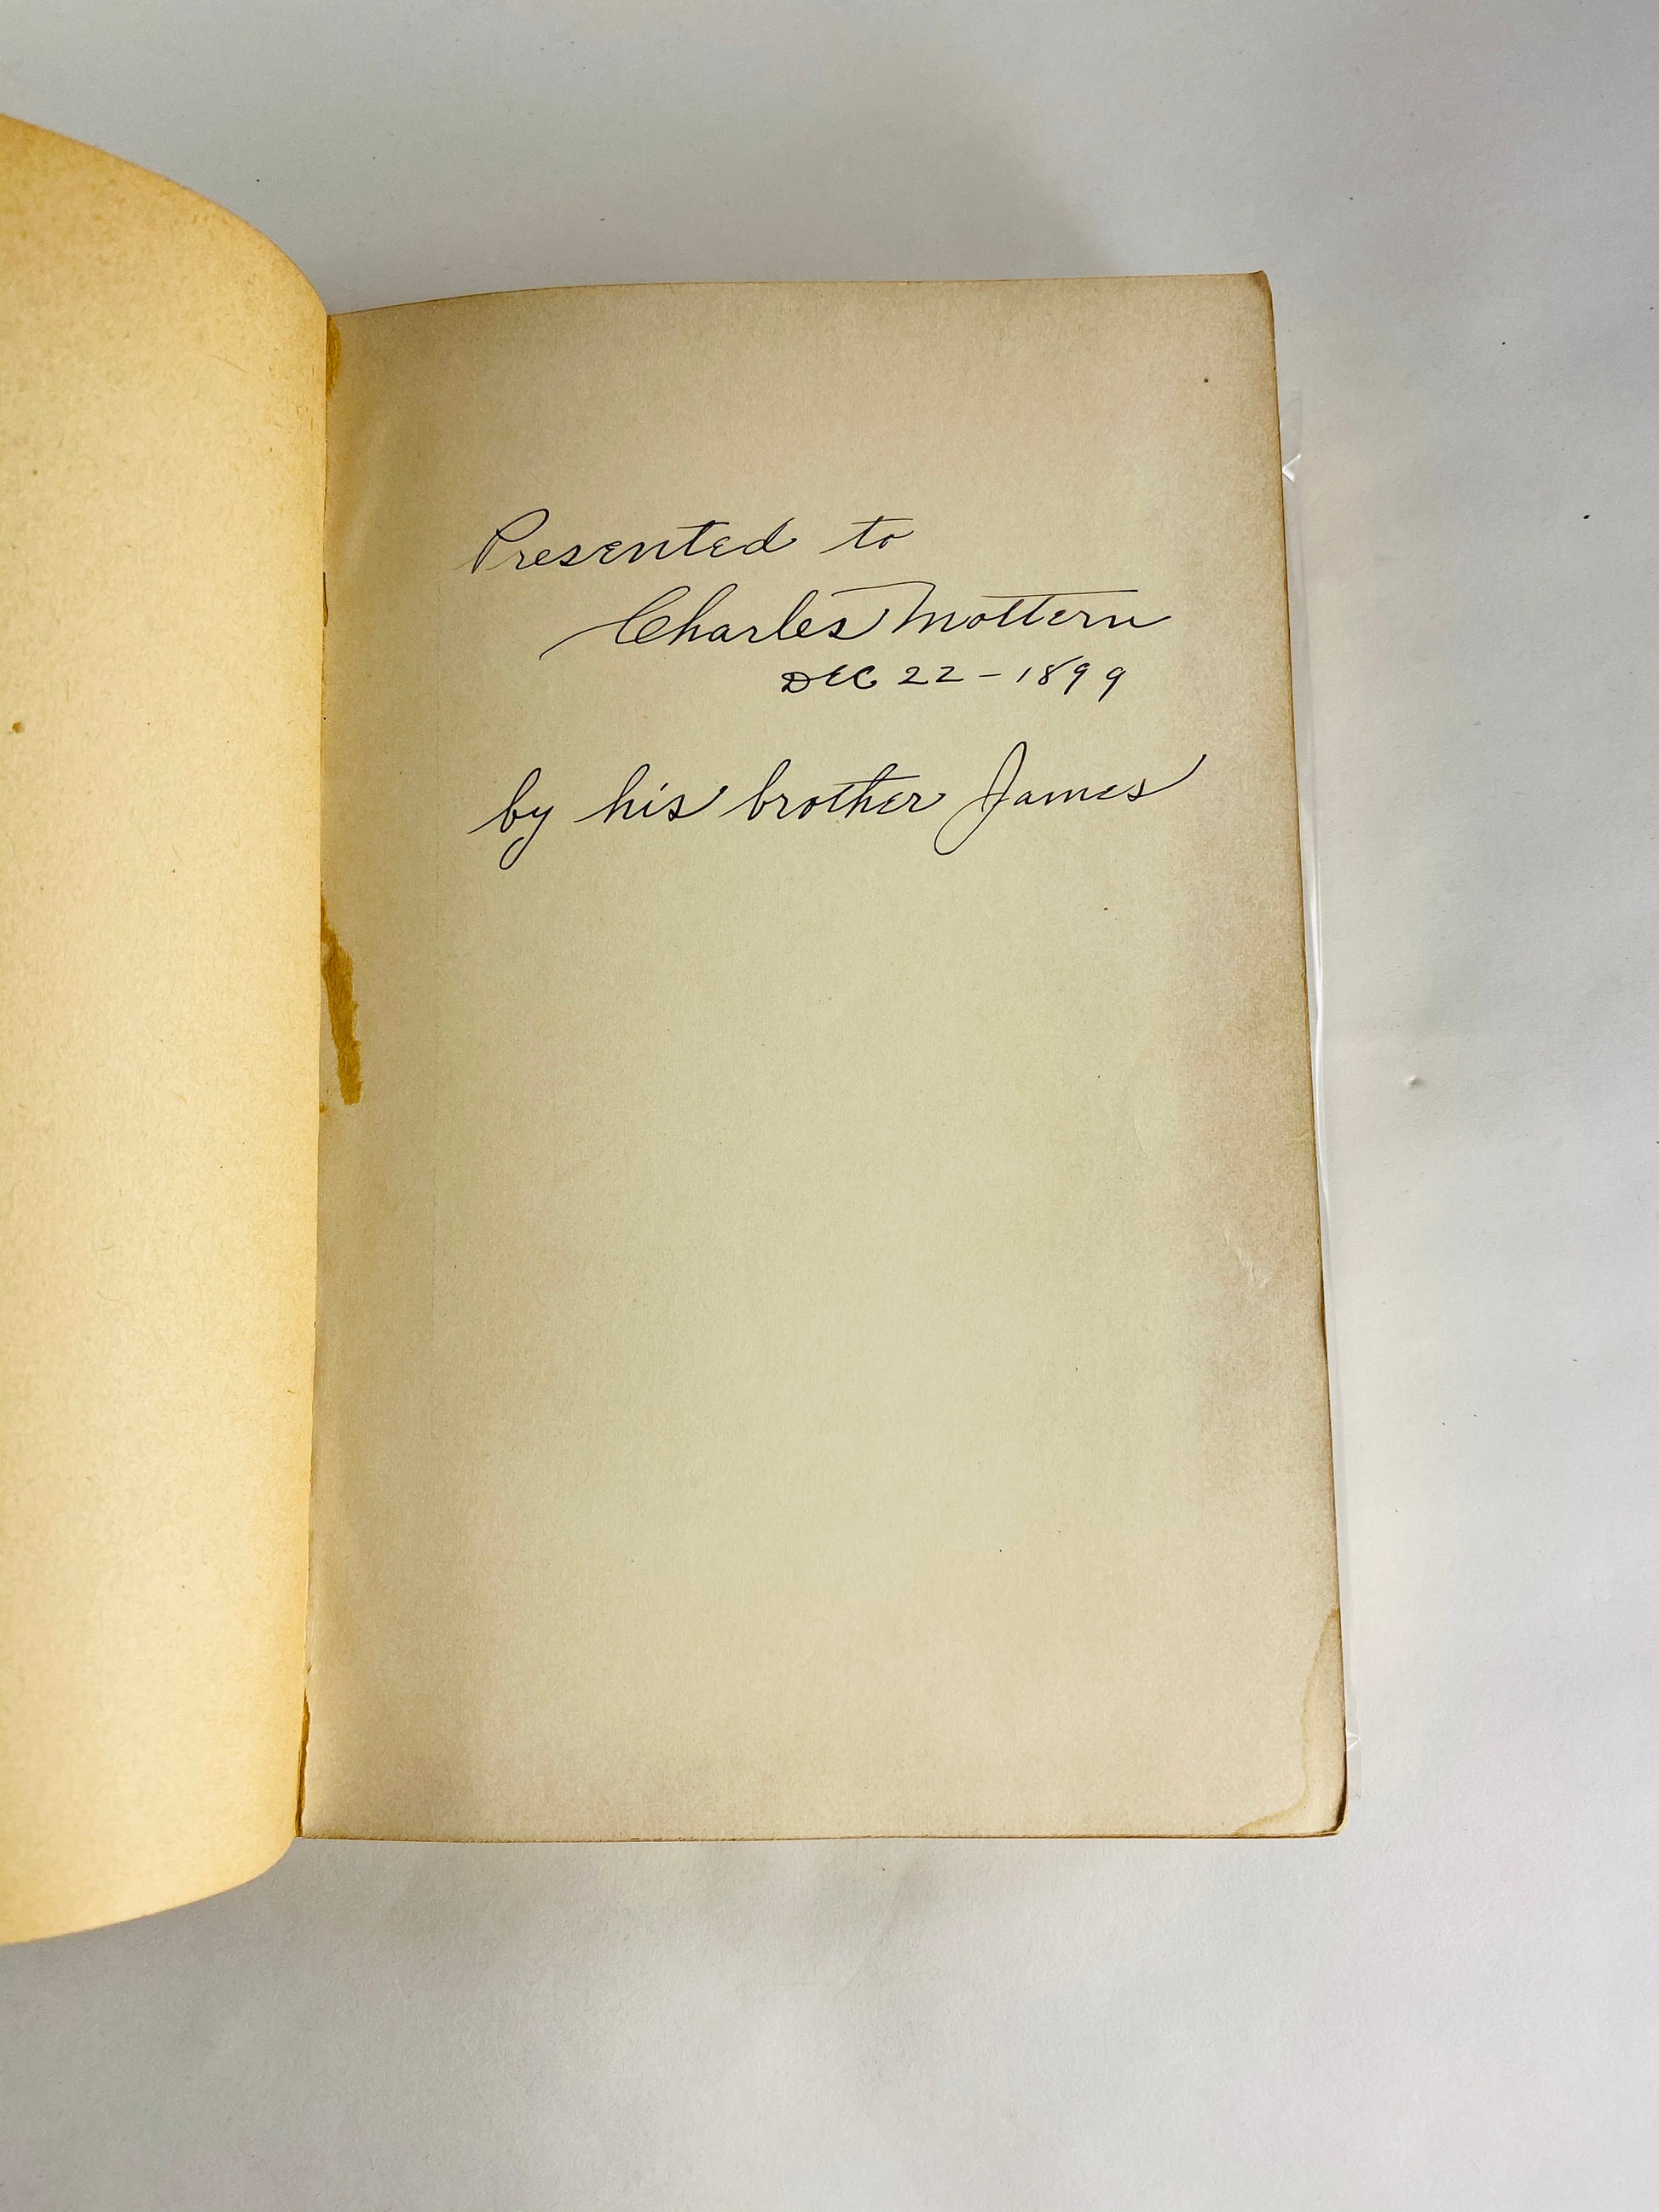 Presented to
Charles Mottern
DEC 22 - 1899
by his brother James